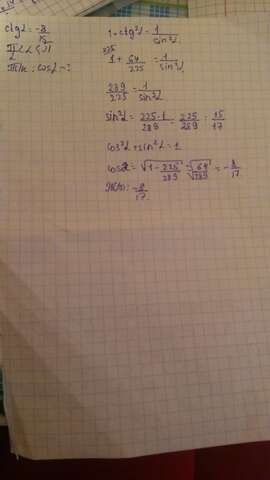 ctg α = -8/15
π/2 < α < π
cos α - ?
1 + ctg²α = 1/sin²α
225
1 + 64/225 = 1/sin²α
289/225 = 1/sin²α
sin²α = 225·1/289 = 225/289 = 15/17
cos²α + sin²α = 1
cos α = √1 - 225/289 = √64/√289 = -8/17
-8/17